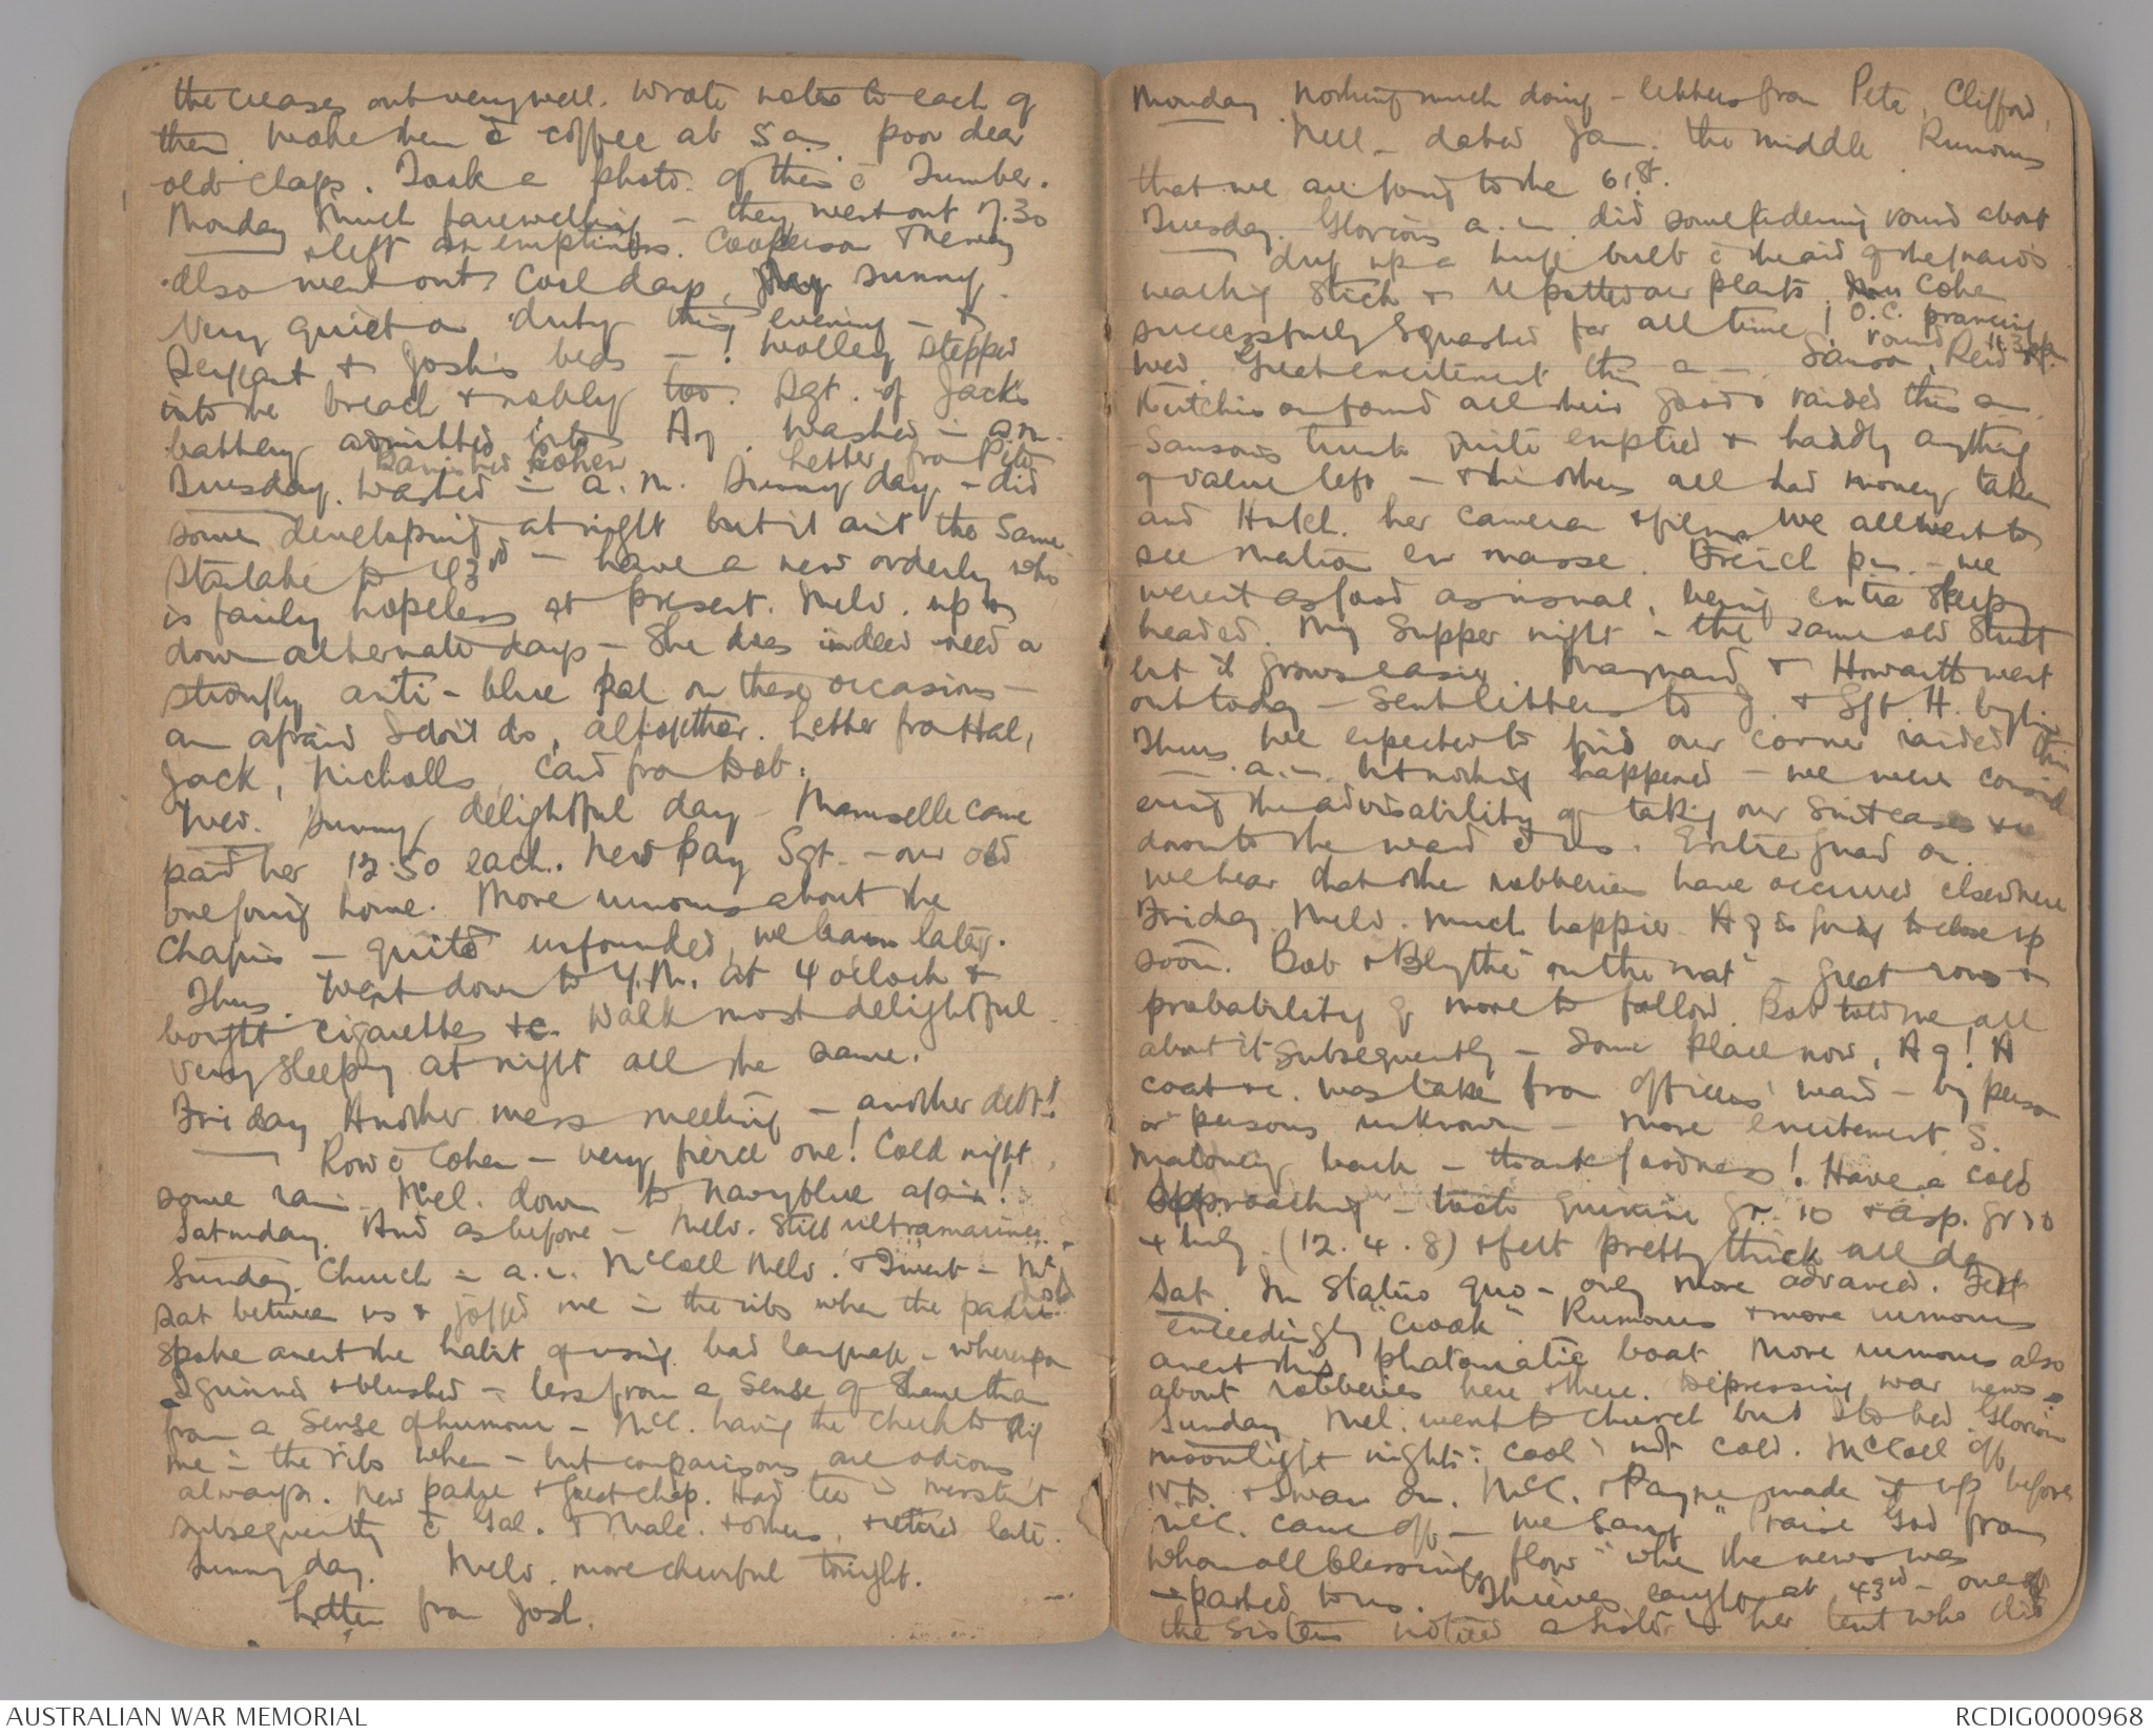 the creases out very well. Wrote notes to each of
them. Woke them c̄ coffee at 5 a.m. poor dear
old chaps. Took a photo. of them c̄ Tumber.
Monday Much farewelling - they went out 7.30
& left an emptiness. Cooperson &
also went out. Cool day, sunny.
Very quiet on duty this evening - &
Sergeant & Josh's beds - ! Wolley stepped
into the breach & nobly too. Sgt. of Jack's
battery admitted into A9. Washed in a.m.
Banished Cohen Letter from Pete
Tuesday. Washed in a.m. Sunny day - did
some developing at night but it ain't the same.
Stalake to 43rd - have a new orderly who
is fairly hopeless at present. Melv. up &
down alternate days - she does indeed need a
strongly anti-blue pal on these occasions -
am afraid I don't do, altogether. Letter from Hal,
Jack, Nicholls, card from Bob.
Wed. Sunny delightful day - Mamselle came
paid her 12.50 each. New Pay Sgt. - our old
one going home. More rumours about the
Chapins - quite unfounded, we learn later.
Thus. Went down to Y.M. at 4 o'clock &
bought cigarettes &c. Walk most delightful.
Very sleepy at night all the same.
Friday Another mess meeting - another debt!
Row c̄ Cohen - very fierce one! Cold night,
some rain. Mel. down to navy blue again!
Saturday. And as before - Melv. still ultramarine.
Sunday. Church in a.m. McColl Melv. & I went - McC
sat between us & jogged me in the ribs when the padre
spoke anent the habit of using bad language - whereupon
I grinned & blushed - less from a sense of shame than
from a sense of humour - McC. having the cheek to dig
me in the ribs when - but comparisons are odious
always. New padre & great chap. Had tea in mess tent
subsequently c̄ Gal. & Male. & others, & retired late.
Sunny day. Melv. more cheerful tonight.
Letter from Josh.
Monday Nothing much doing - letters from Pete, Clifford,
Nell - dated Jan. the middle Rumours
that we are going to the 61st.
Tuesday. Glorious a.m. did some gardening round about
- dug up a huge bulb c̄ the aid of the guard's
walking stick & repotted our plants. Cohen
successfully squashed for all time! O.C. prancing
round 11.30 pm
Wed. Great excitement this a.m. Sanson, Reid &
Hutchison found all their goods raided this am.
Sanson's trunk quite emptied & hardly anything
of value left - & the others all had money taken
and Hutch. her camera & films. We all went to
see Matron en masse. French pm. - we
weren't as good as usual, being extra sleepy
headed. My supper night - the same old stunt
but it grows easier. Maynard & Howarth went
out today - sent letters to J. & Sgt. H. by him
Thus We expected to find our corner raided this
a.m. but nothing happened - we were consid
ering the advisability of taking our suitcases &c
down to the ward c̄ us. Extra guard on.
We hear that other robberies have occurred elsewhere
Friday Melv. much happier. A9 is going to close up
soon. Bob & Blythe "on the mat" - great rows &
probability of more to follow. Bob told me all
about it subsequently - Some place now, A9! A
coat &c. was taken from officers' ward - by person
or persons unknown - more excitement. S.
Maloney back - thank goodness! Have a cold
approaching - took quinine gr. 10 & asp. gr 10
& (12.4.8) & felt pretty thick all day
Sat. In status quo - only more advanced. Felt
exceedingly "crook". Rumours & more rumours
anent this boat. More rumours also
about robberies here & there. Depressing war news.
Sunday Mel. went to church but I to bed. Glorious
moonlight nights: cool, not cold. McColl off
N.D. & Swan on. McC. & Payne made it up before
McC. came off - we sang "Praise God from
whom all blessings flow" when the news was
imparted to us. Thieves caught at 43rd - one of
the Sisters noticed a sister in her tent who did